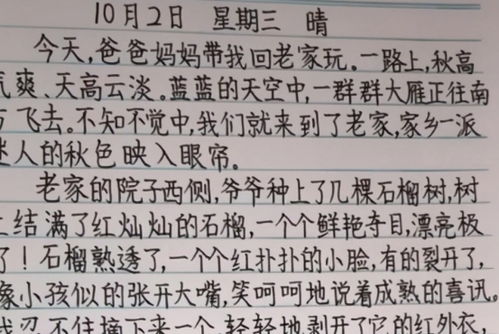 10月2日 星期三 晴
今天,爸爸妈妈带我回老家玩。一路上,秋高
气爽、天高云淡。蓝蓝的天空中,一群群大雁正往南
方飞去。不知不觉中,我们就来到了老家,家乡一派
迷人的秋色映入眼帘。
老家的院子西侧,爷爷种上了几棵石榴树,树
上结满了红灿灿的石榴,一个个鲜艳夺目,漂亮极
了!石榴熟透了,一个个红扑扑的小脸,有的裂开了,
像小孩似的张开大嘴,笑呵呵地说着成熟的喜讯。
我忍不住摘下来一个,轻轻地剥开了它的红外衣